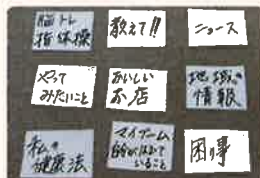 脳トレ
指体操
教えて!!
ニュース
やって
みたいこと
おいしい
お店
地域の
情報
私の
健康法
マイブーム
いること
困り事